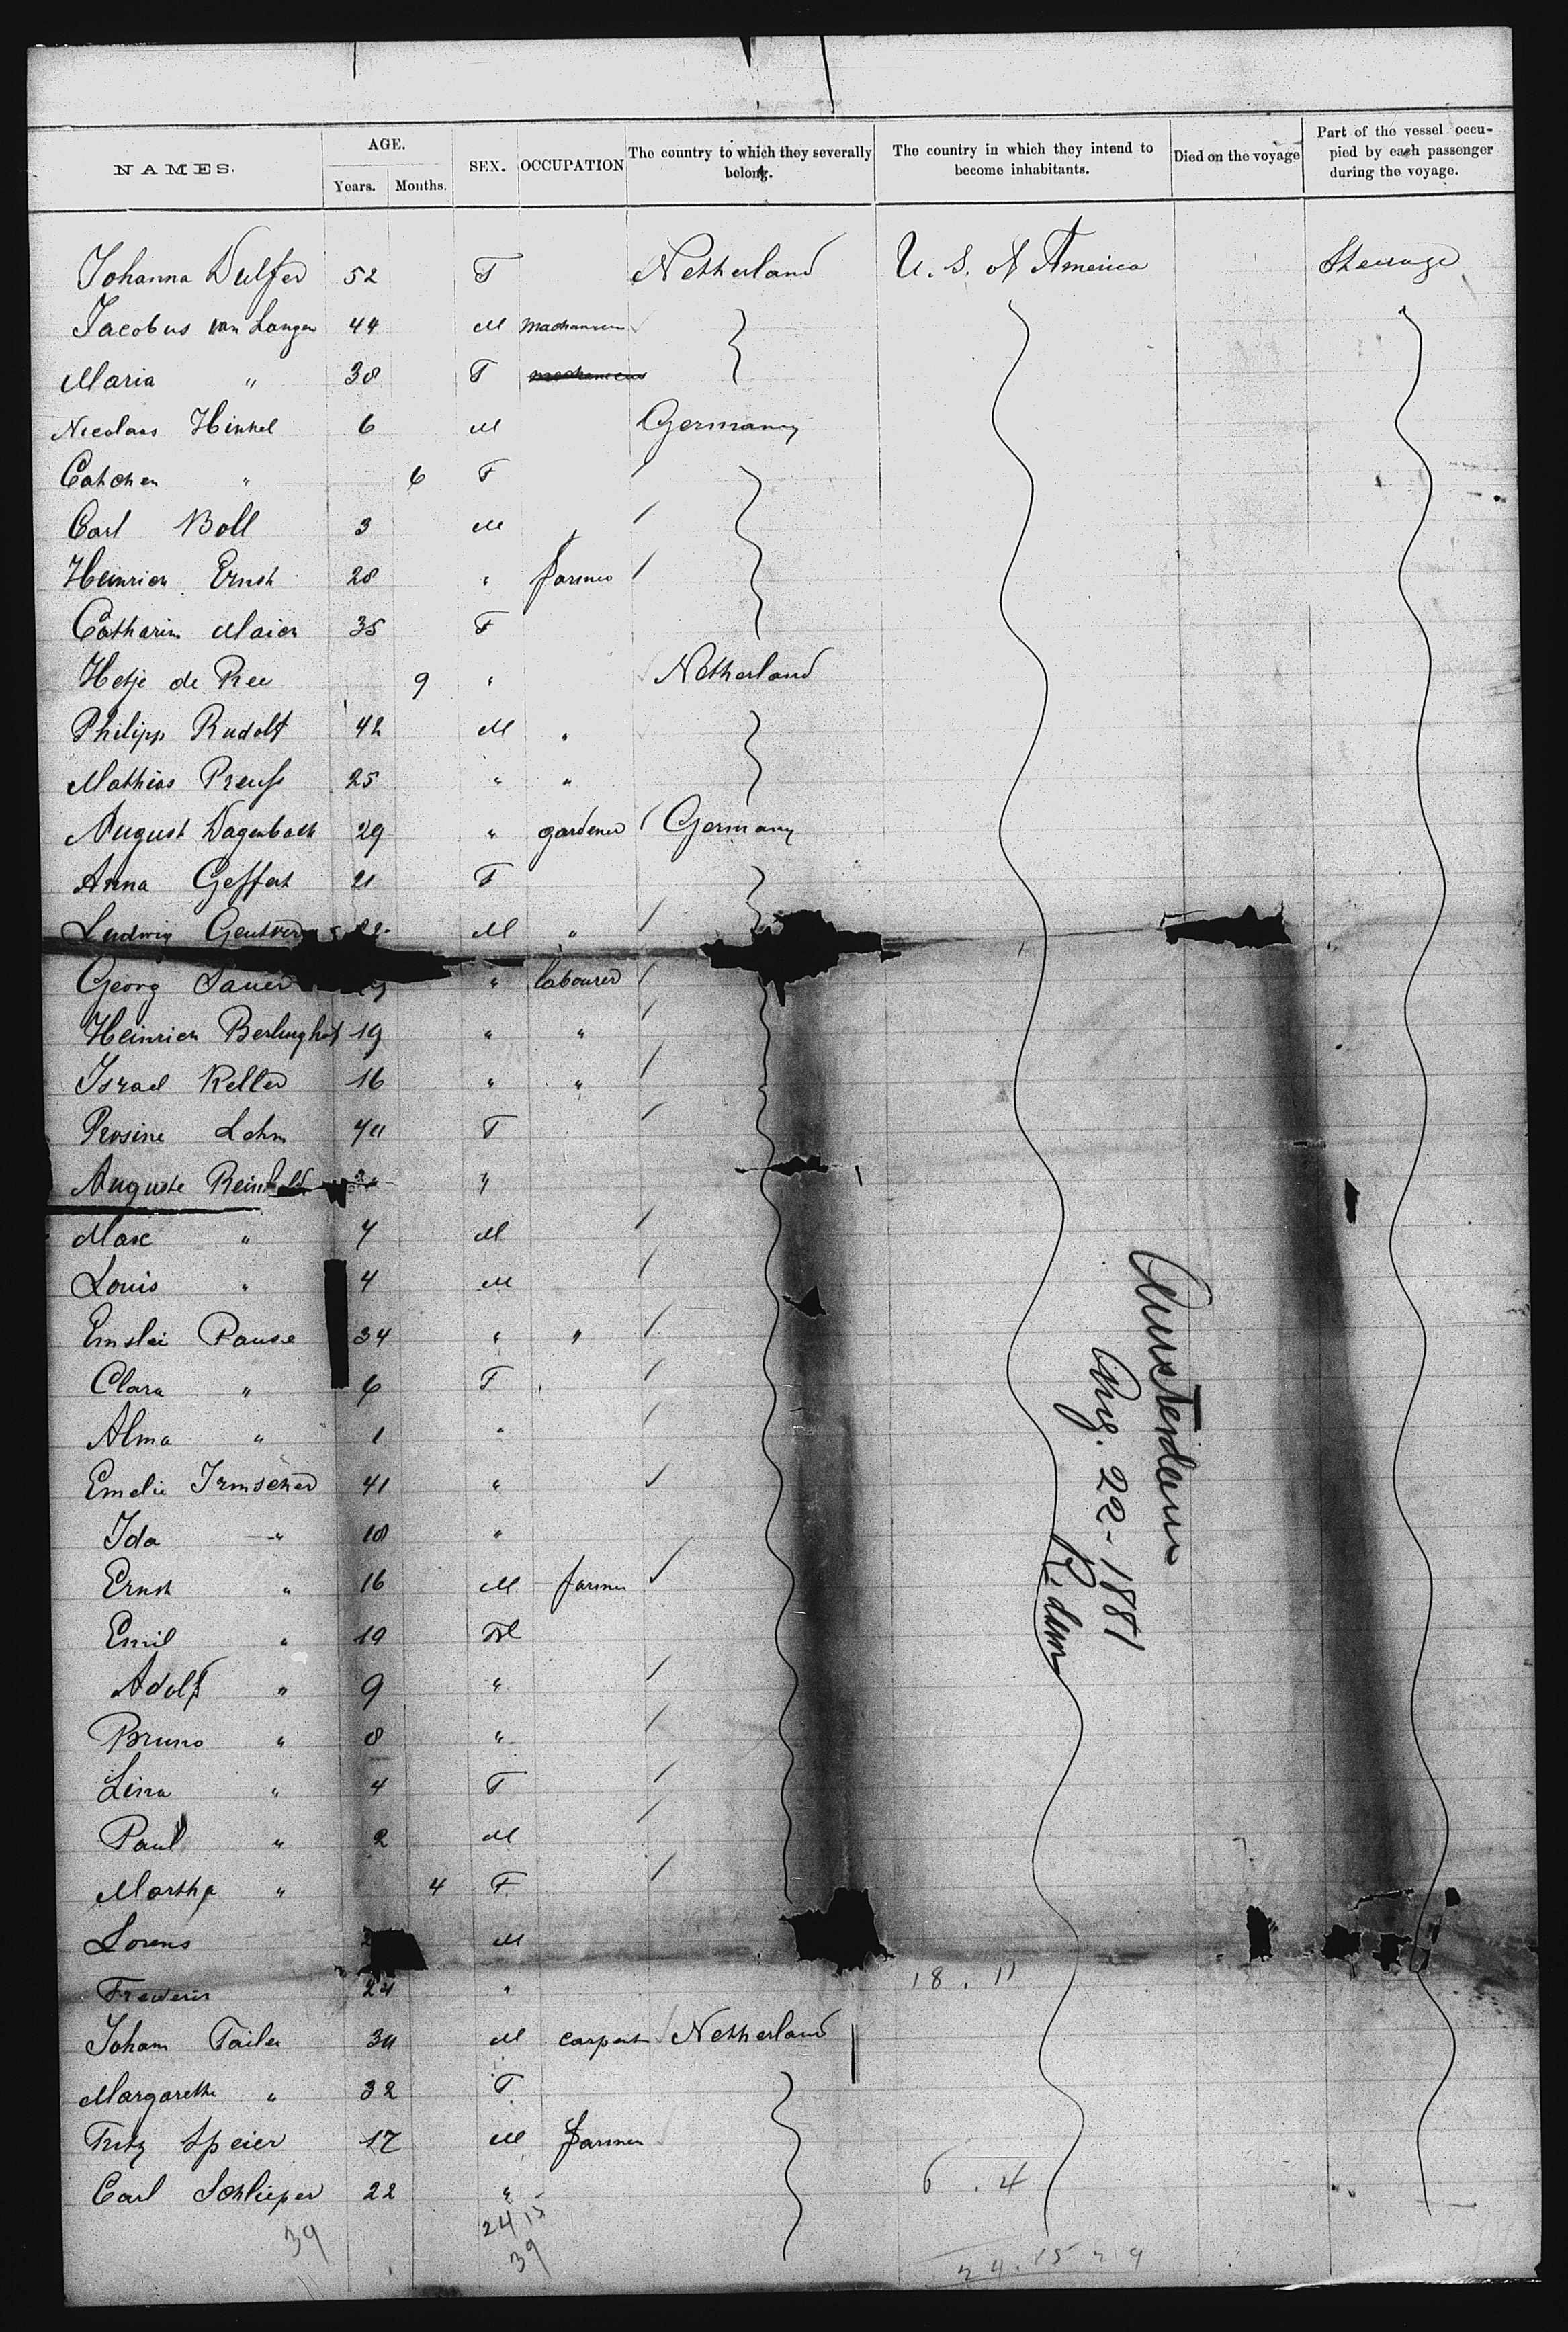 NAMES. AGE. Years. Months. SEX. OCCUPATION The country to which they severally belong. The country in which they intend to become inhabitants. Died on the voyage Part of the vessel occupied by each passenger during the voyage.
Johanna Dulfer 52 F Netherland U. S. of America Steerage
Jacobus van Langen 44 M
Maria " 38 F
Nicolaas Hinkel 6 M Germany
Catchen " 6 F
Carl Boll 3 M
Heinrich Ernst 28 " farmer
Catharin Maier 35 F
Hetje de Pree 9 " Netherland
Philipp Rudolf 42 M "
Mathias Preuss 25 " "
August Dagenbach 29 " gardener Germany
Anna Geffert 21 F
Ludwig M "
Georg Sauer " labourer
Heinrich Berlinghof 19 " "
Israel Keller 16 " "
Rosine Lehm F
Auguste Reinhold "
Max " 7 M
Louis " 4 M
Pause 34 " "
Clara " 6 F
Alma " 1 "
Emelie Irmscher 41 "
Ida " 18 "
Ernst " 16 M farmer
Emil " 19 M
Adolf " 9 "
Bruno " 8 "
Lina " 4 F
Paul " 2 M
Martha " 4 F
Lorens M
24 "
18 . 11
Johann Tailer M carpent Netherland
Margarethe " 32 F
Fritz Speier 17 M farmer
Carl Schlieper 22 "
6 . 4
39 24 15
39
24 . 15
Amsterdam
Aug. 22 - 1881
R. dam